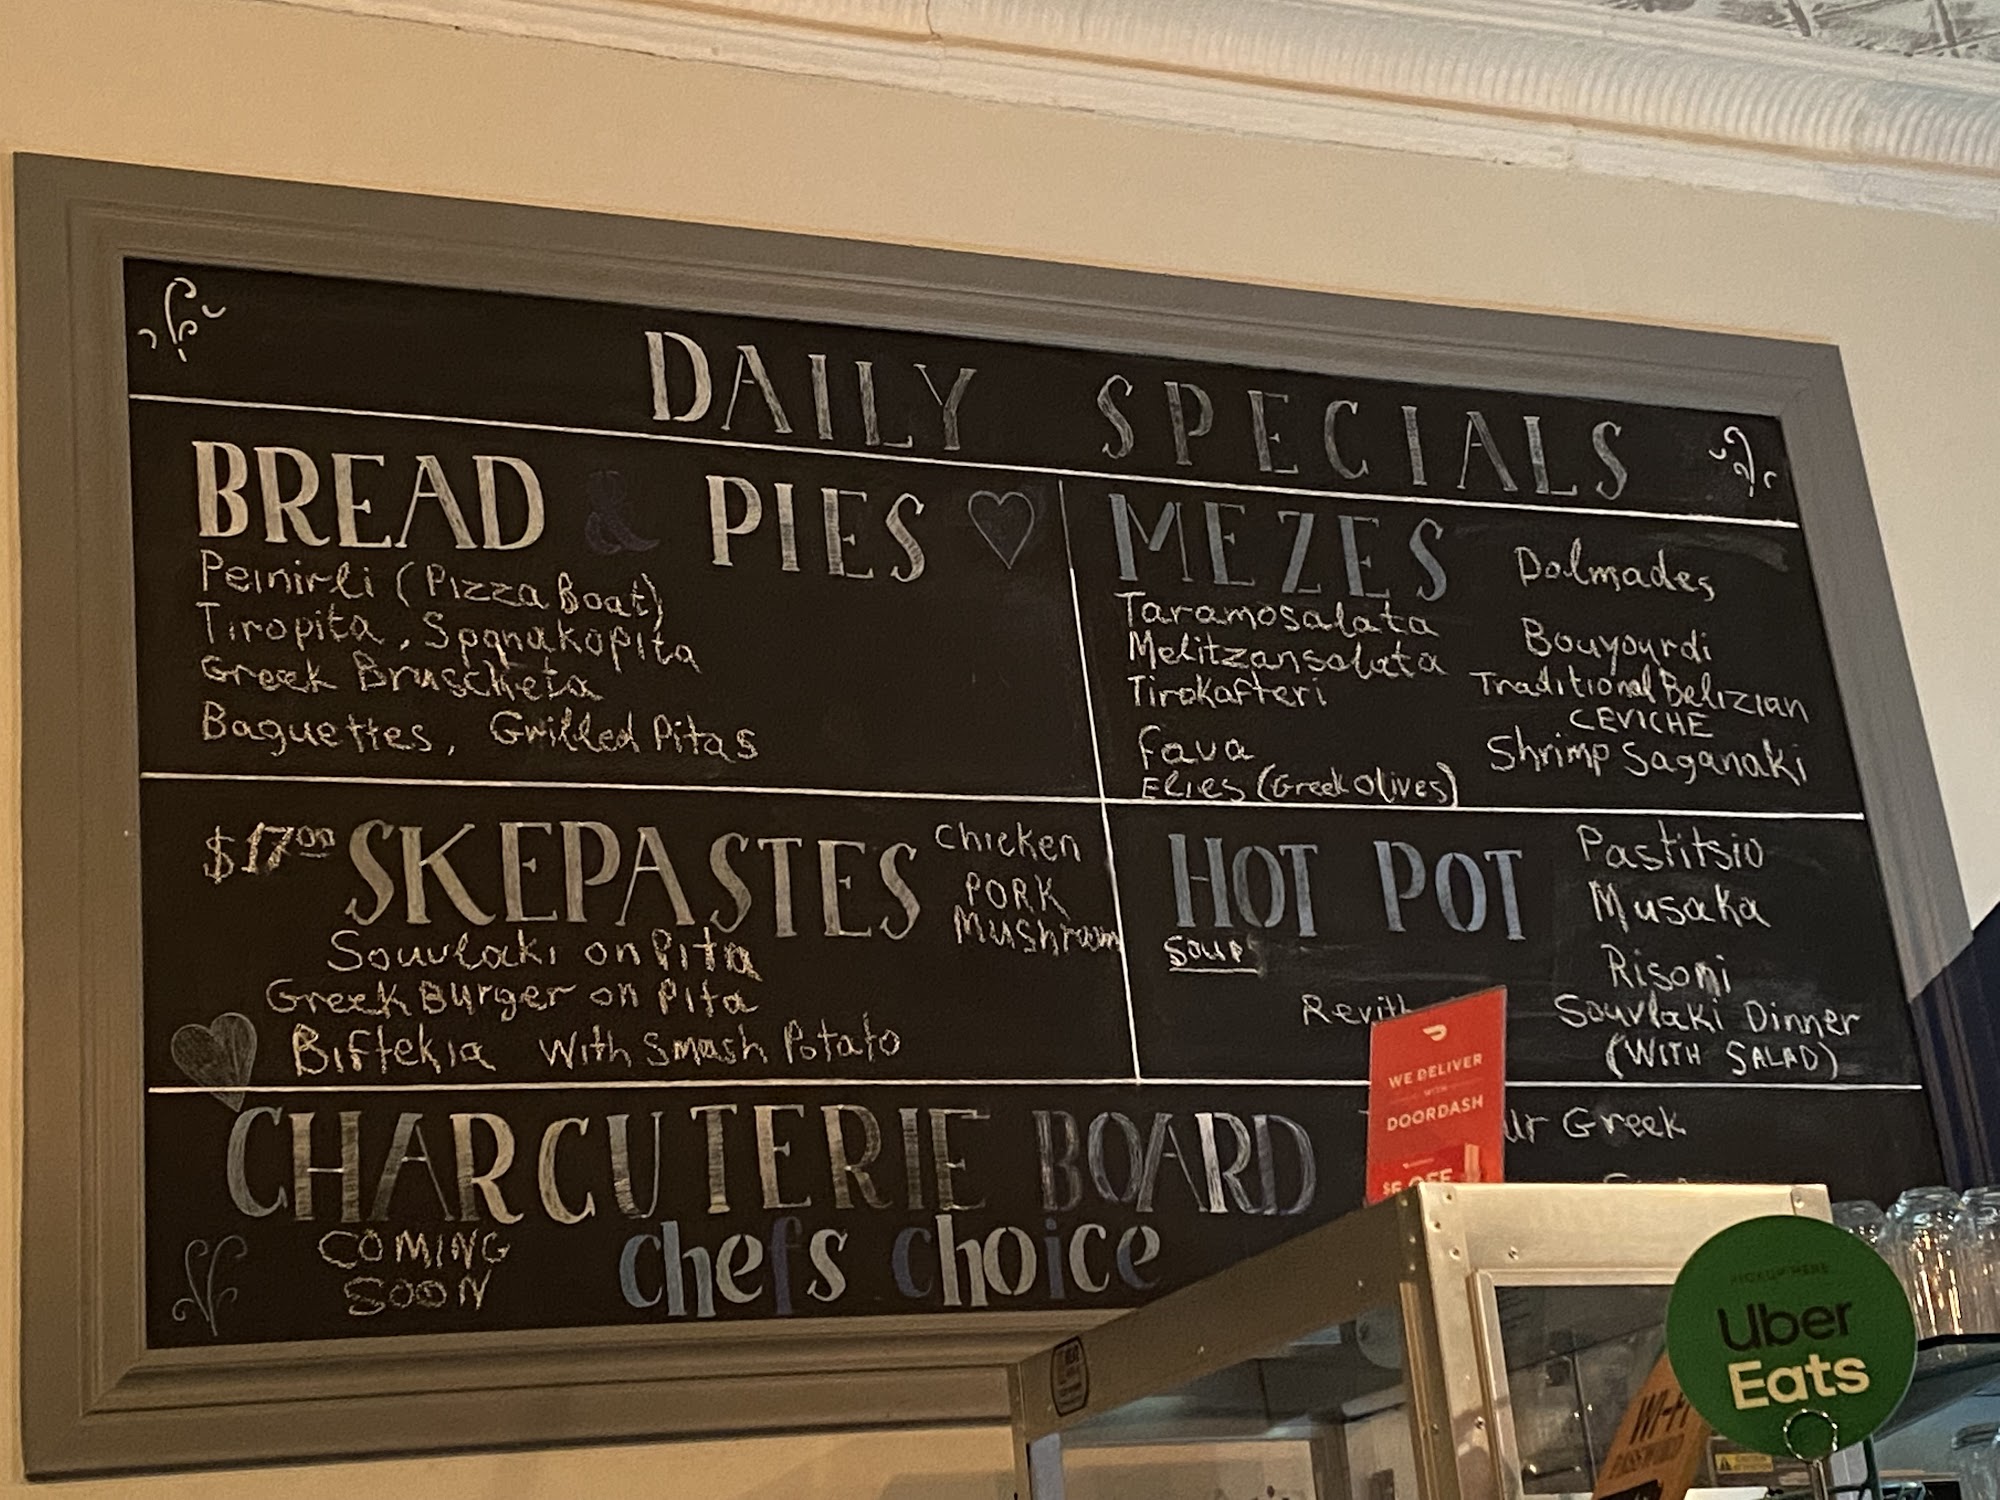 DAILY SPECIALS
BREAD & PIES
Peinirli (Pizza Boat)
Tiropita, Spanakopita
Greek Bruscheta
Baguettes, Grilled Pitas
MEZES
Taramosalata
Melitzansalata
Tirokafteri
Fava
Elies (Greek Olives)
Dolmades
Bouyourdi
Traditional Belizian
CEVICHE
Shrimp Saganaki
$17.00 SKEPASTES
Chicken
PORK
Mushroom
Souvlaki on Pita
Greek Burger on Pita
Biftekia With Smash Potato
HOT POT
Soup
Revith
Pastitsio
Musaka
Risoni
Souvlaki Dinner
(WITH SALAD)
CHARCUTERIE BOARD
Greek
COMING
SOON
chefs choice
WE DELIVER
WITH
DOORDASH
$5 OFF
PICKUP HERE
Uber
Eats
WI-FI
PASSWORD